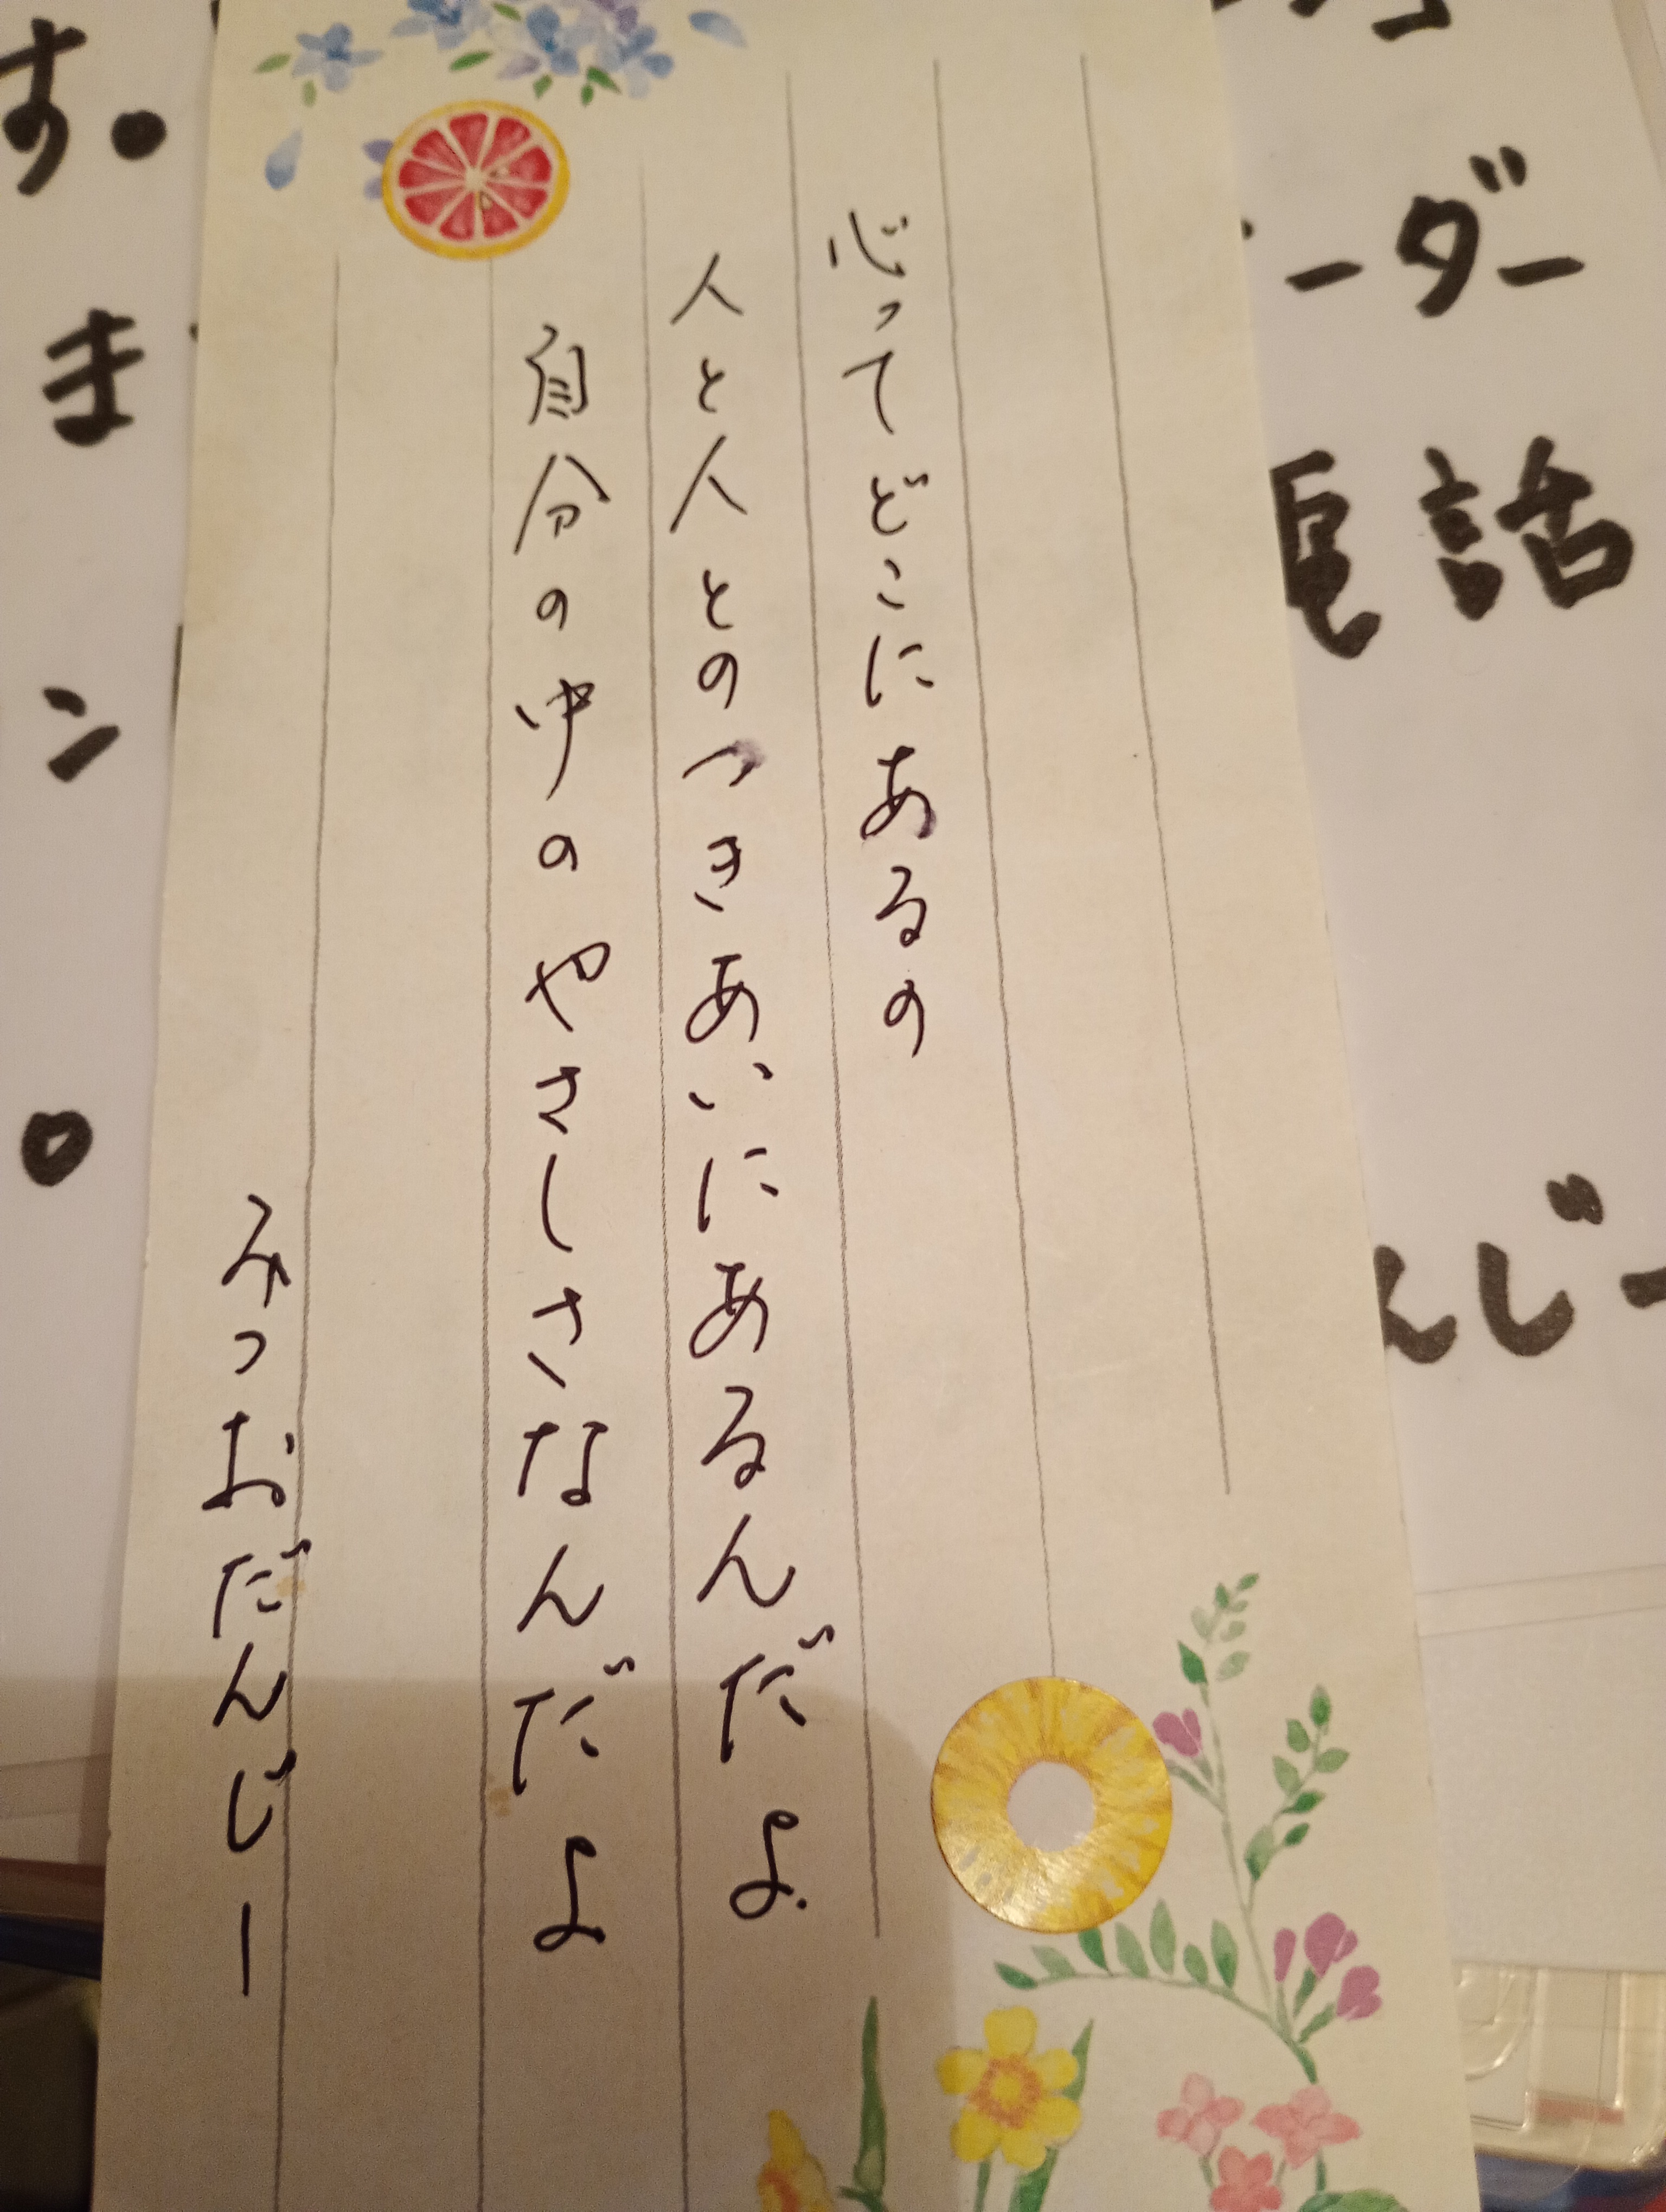 心ってどこにあるの
人と人とのつきあいにあるんだよ
自分の中のやさしさなんだよ
みつおだんじー
ーダー
電話
んじー
す。
ま
ン